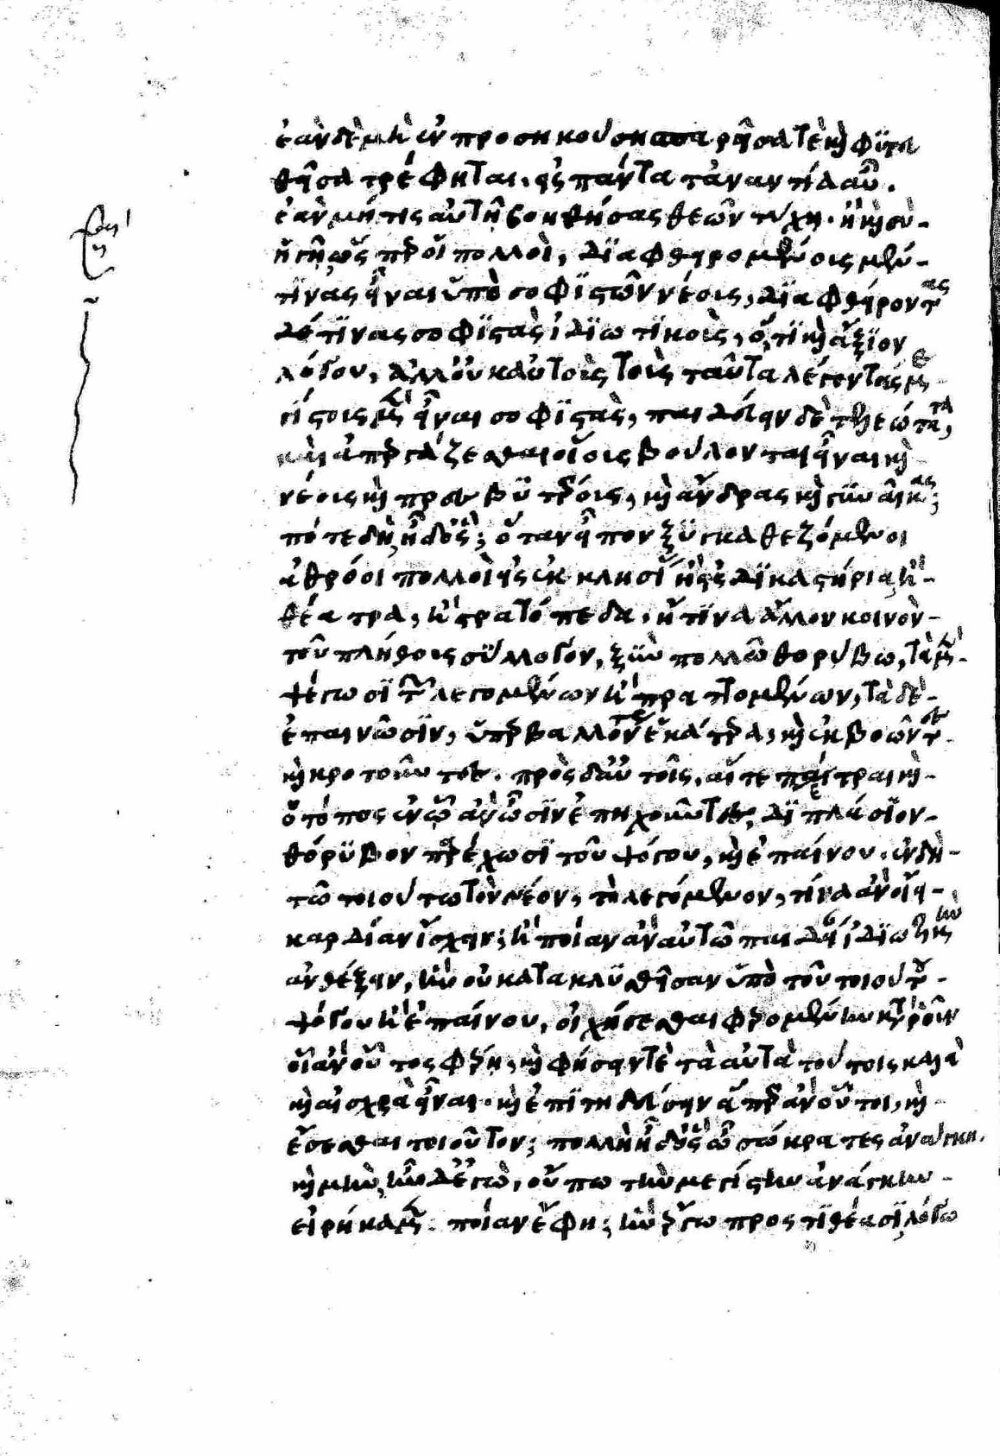 ἐὰν δὲ μὴ ἐν προσηκούσῃ σπαρεῖσά τε καὶ φυτευ
θεῖσα τρέφηται, εἰς πάντα τἀναντία αὖ.
ἐὰν μή τις αὐτῇ βοηθήσας θεῶν τύχῃ. ἢ καὶ σὺ
ἡγῇ ὥσπερ οἱ πολλοί, διαφθειρομένους
τινας εἶναι ὑπὸ σοφιστῶν νέους, διαφθείροντας
δέ τινας σοφιστὰς ἰδιωτικοὺς, ὅ,τι καὶ ἄξιον
λόγου, ἀλλ' οὐκ αὐτοὺς τοὺς ταῦτα λέγοντας με
γίστους μὲν εἶναι σοφιστὰς, παιδεύειν δὲ τελεώτατα,
καὶ ἀπεργάζεσθαι οἵους βούλονται εἶναι καὶ
νέους καὶ πρεσβυτέρους, καὶ ἄνδρας καὶ γυναῖκας;
πότε δὴ; ἦ δ' ὅς; ὅταν εἶπον ξυγκαθεζόμενοι
ἀθρόοι πολλοὶ εἰς ἐκκλησίας ἢ εἰς δικαστήρια, ἢ
θέατρα, ἢ στρατόπεδα, ἤ τινα ἄλλον κοινὸν
τοῦ πλήθους σύλλογον, ξὺν πολλῷ θορύβῳ, τὰ μὲν
ψέγωσι τῶν λεγομένων ἢ πραττομένων, τὰ δὲ
ἐπαινῶσιν, ὑπερβαλλόντως ἑκάτερα, καὶ ἐκβοῶντες
καὶ κροτοῦντες. πρὸς δ' αὖ τοῖς, αἵ τε πέτραι καὶ
ὁ τόπος ἐν ᾧ ἂν ὦσιν ἐπηχοῦντες, διπλάσιον
θόρυβον παρέχωσι τοῦ ψόγου, καὶ ἐπαίνου. ἐν δὴ
τῷ τοιούτῳ τὸν νέον, τὸ λεγόμενον, τίνα ἂν οἴει
καρδίαν ἴσχειν; ἢ ποίαν ἂν αὐτῷ παιδείαν ἰδιωτικὴν
ἀνθέξειν, ἣν οὐ κατακλυσθεῖσαν ὑπὸ τοῦ τοιούτου
ψόγου ἢ ἐπαίνου, οἰχήσεσθαι φερομένην κατὰ ῥοῦν
οἷ ἂν οὗτος φέρῃ, καὶ φήσειν τε τὰ αὐτὰ τούτοις καλὰ
καὶ αἰσχρὰ εἶναι. καὶ ἐπιτηδεύσειν ἅπερ ἂν οὗτοι, καὶ
ἔσεσθαι τοιοῦτον; πολλὴ ἦ δ' ὅς ὦ σώκρατες ἀνάγκη.
καὶ μὴν, ἦν δ' ἐγὼ, οὔπω τὴν μεγίστην ἀνάγκην
εἰρήκαμεν. ποίαν ἔφη; ἣν ἔργῳ προστιθέασι, λόγῳ